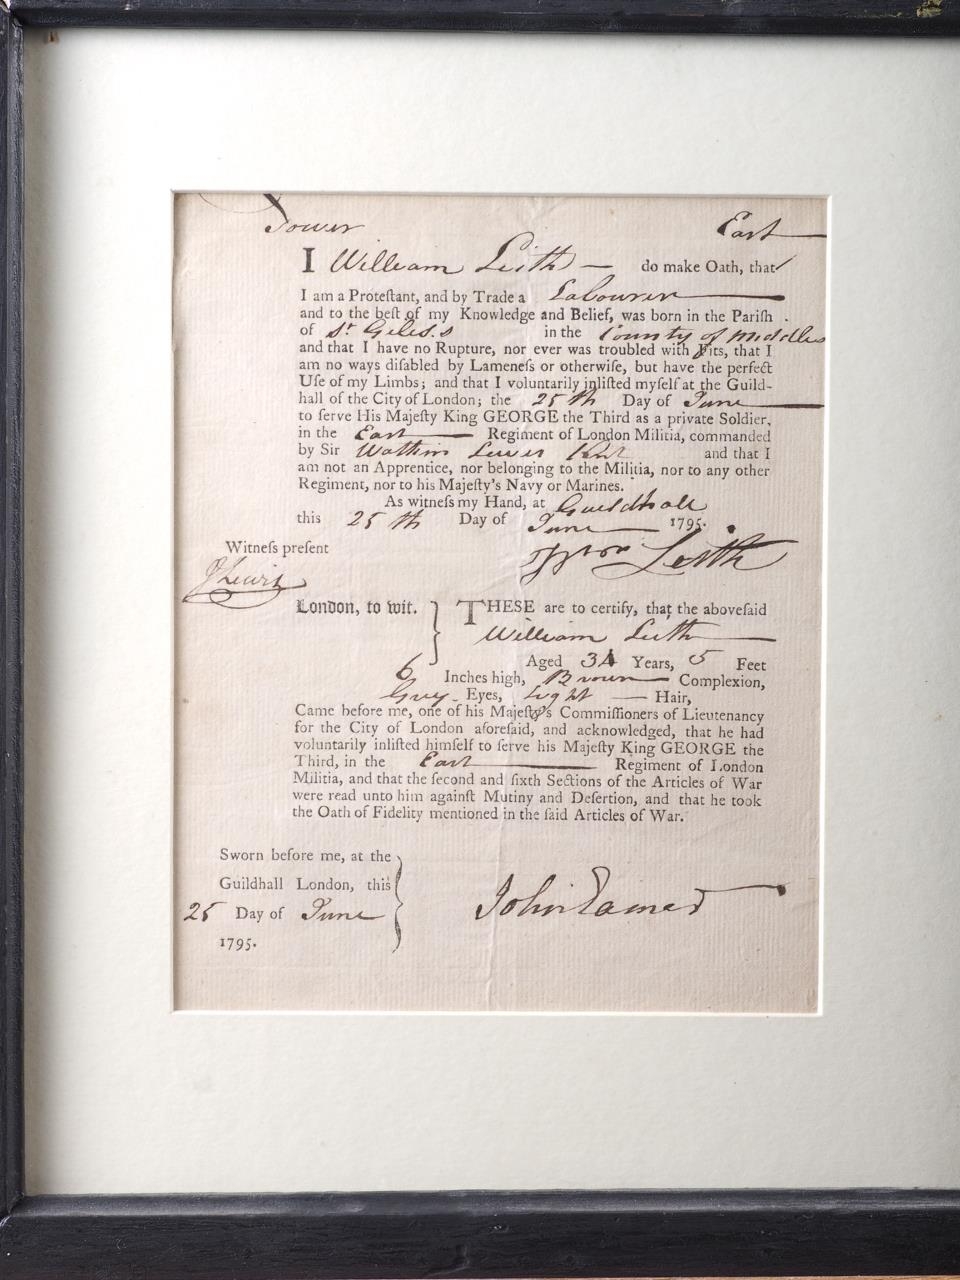 Tower East
I William Leith do make Oath, that
I am a Proteſtant, and by Trade a Labourer
and to the beſt of my Knowledge and Belief, was born in the Pariſh
of St Giles's in the County of Middlesx
and that I have no Rupture, nor ever was troubled with Fits, that I
am no ways diſabled by Lameneſs or otherwiſe, but have the perfect
Uſe of my Limbs; and that I voluntarily inliſted myſelf at the Guild-
hall of the City of London; the 25th Day of June
to ſerve His Majeſty King GEORGE the Third as a private Soldier,
in the East Regiment of London Militia, commanded
by Sir Watkin Lewes Knt and that I
am not an Apprentice, nor belonging to the Militia, nor to any other
Regiment, nor to his Majeſty's Navy or Marines.
As witneſs my Hand, at Guildhall
this 25th Day of June 1795.
Witneſs preſent Wm Leith
J Lewis
London, to wit. } THESE are to certify, that the aboveſaid
William Leith
Aged 34 Years, 5 Feet
6 Inches high, Brown Complexion,
Grey Eyes, Light Hair,
Came before me, one of his Majeſty's Commiſſioners of Lieutenancy
for the City of London aforeſaid, and acknowledged, that he had
voluntarily inliſted himſelf to ſerve his Majeſty King GEORGE the
Third, in the East Regiment of London
Militia, and that the ſecond and ſixth Sections of the Articles of War
were read unto him againſt Mutiny and Deſertion, and that he took
the Oath of Fidelity mentioned in the ſaid Articles of War.
Sworn before me, at the
Guildhall London, this
25 Day of June } John Eamer
1795.